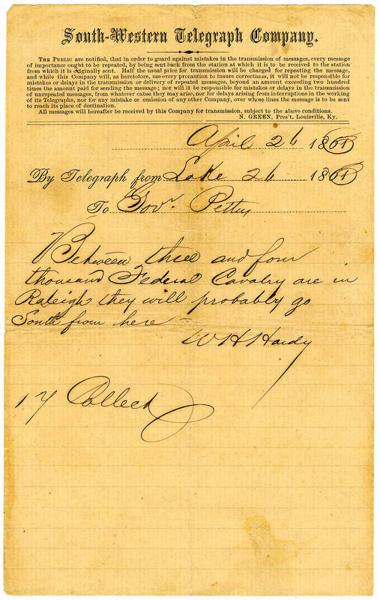 South-Western Telegraph Company.
THE PUBLIC are notified, that in order to guard against mistakes in the transmission of messages, every message
of importance ought to be repeated, by being sent back from the station at which it is to be received to the station
from which it is originally sent. Half the usual price for transmission will be charged for repeating the message,
and while this Company will, as heretofore, use every precaution to insure correctness, it will not be responsible for
mistakes or delays in the transmission or delivery of repeated messages, beyond an amount exceeding two hundred
times the amount paid for sending the message; nor will it be responsible for mistakes or delays in the transmission
of unrepeated messages, from whatever cause they may arise, nor for delays arising from interruptions in the working
of its Telegraphs, nor for any mistake or omission of any other Company, over whose lines the message is to be sent
to reach its place of destination.
All messages will hereafter be received by this Company for transmission, subject to the above conditions.
N. GREEN, Pres't, Louisville, Ky.
April 26 186
By Telegraph from Lake 26 186
To Govr. Pettus
Between three and four
thousand Federal Cavalry are in
Raleigh they will probably go
South from here
W H Hardy
17 Collect